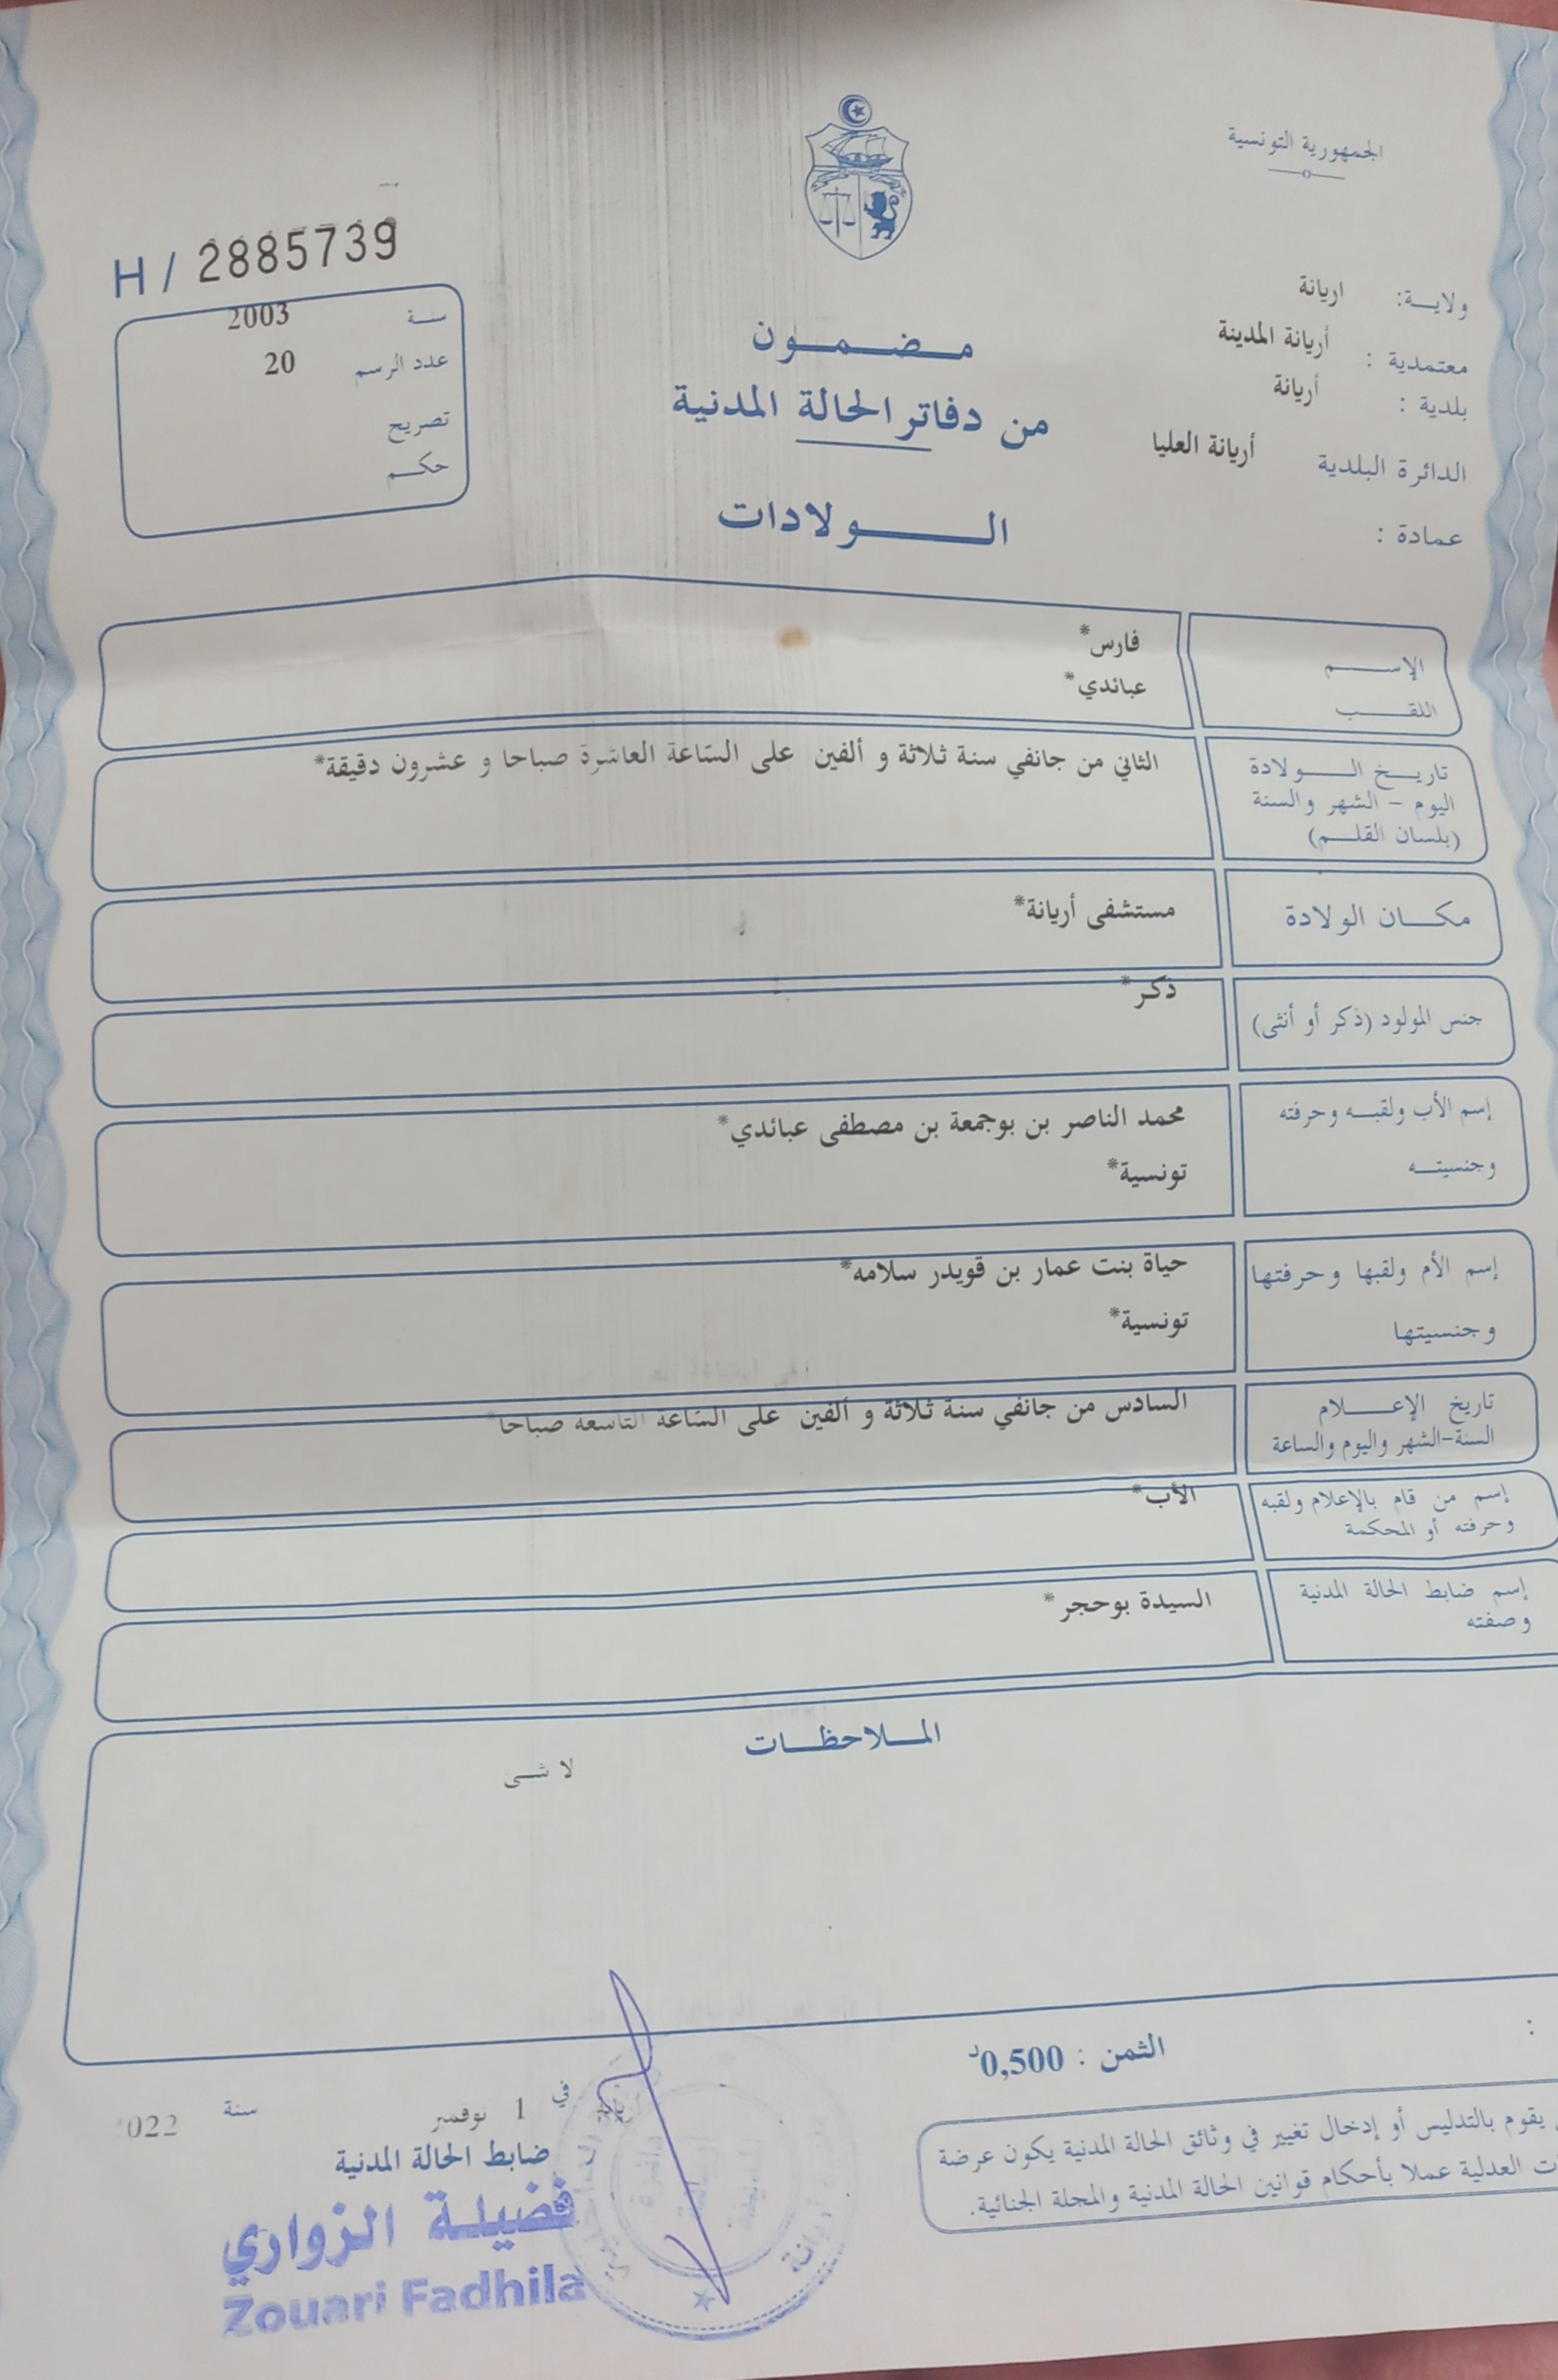 الجمهورية التونسية
ولايـــة: اريانة
معتمدية : أريانة المدينة
بلدية : أريانة
الدائرة البلدية أريانة العليا
عمادة :
H / 2885739
سنـة 2003
عدد الرسم 20
تصريح
حكــم
مـضـمـون
من دفاتر الحالة المدنية
الـولادات
الإســـم فارس*
اللقــب عبائدي*
تاريـخ الــولادة الثاني من جانفي سنة ثلاثة و ألفين على السّاعة العاشرة صباحا و عشرون دقيقة*
اليوم - الشهر والسنة
(بلسان القلــم)
مكــان الولادة مستشفى أريانة*
جنس المولود (ذكر أو أنثى) ذكر*
إسم الأب ولقبــه وحرفته محمد الناصر بن بوجمعة بن مصطفى عبائدي*
وجنسيتــه تونسية*
إسم الأم ولقبها وحرفتها حياة بنت عمار بن قويدر سلامه*
وجنسيتها تونسية*
تاريخ الإعــلام السادس من جانفي سنة ثلاثة و ألفين على السّاعة التاسعة صباحا*
السنة-الشهر واليوم والساعة
إسم من قام بالإعلام ولقبه الأب*
وحرفته أو المحكمة
إسم ضابط الحالة المدنية السيدة بوحجر*
وصفته
المــلاحظــات
لا شـى
الثمن : 0,500د
يقوم بالتدليس أو إدخال تغيير في وثائق الحالة المدنية يكون عرضة
العدلية عملا بأحكام قوانين الحالة المدنية والمجلة الجنائية.
في 1 نوفمبر سنة 022
ضابط الحالة المدنية
فضيلة الزواري
Zouari Fadhila